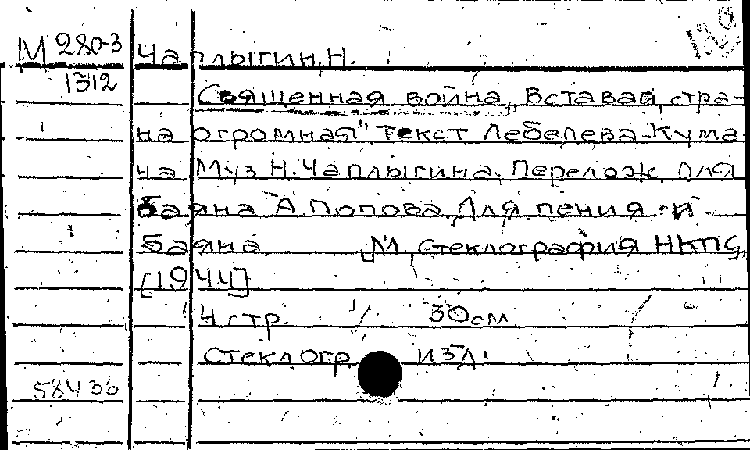 М 280-3 Чаплыгин, Н.
1312
Священная война, „Вставай, стра-
на огромная" Текст Лебедева-Кума-
ча Муз Н. Чаплыгина. Перелож для
баяна А. Попова. Для пения и
баяна [М, стеклография НКПС,
[1944]
4 стр. 30 см
стеклогр. изд.